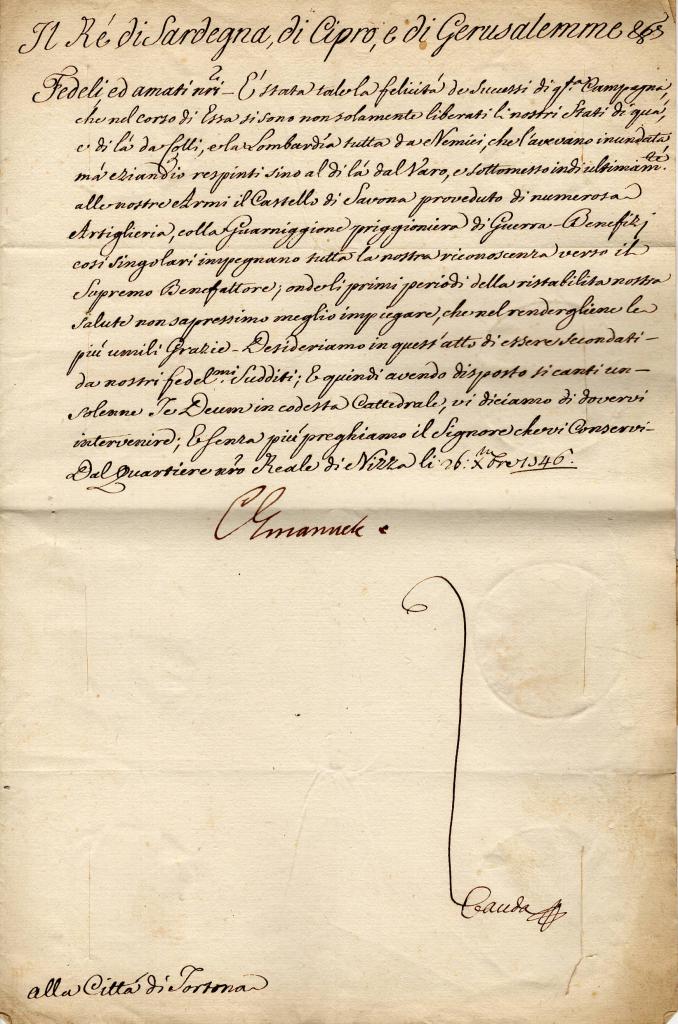 Il Ré di Sardegna, di Cipro, e di Gerusalemme &c
Fedeli ed amati nri - É stata tale la felicitá de Successi di qta Campagna,
che nel corso di Essa si sono non solamente liberati li nostri Stati di quá,
e di lá da Colli, e la Lombardia tutta da Nemici, che l'avevano inundata
má eziandio respinti sino al di lá dal Varo, e sottomesso indi ultimamte
alle nostre Armi il Castello di Savona proveduto di numerosa
Artiglieria, colla Guarniggione priggioniera di Guerra - Benefizj
cosi singolari impegnano tutta la nostra riconoscenza verso il
Supremo Benefattore; onde li primi periodi della ristabilita nostra
salute non sapressimo meglio impiegare, che nel rendergliene le
piú umili Grazie - Desideriamo in quest'atto di essere secondati
da nostri fedelmi Sudditi; E quindi avendo disposto si canti un
solenne Te Deum in codesta Cattedrale, vi diciamo di dovervi
intervenire; E senza piú preghiamo il Signore che vi Conservi -
Dal Quartiere nro Reale di Nizza li 26: Xbre 1746.
C Emanuele
alla Cittá di Tortona